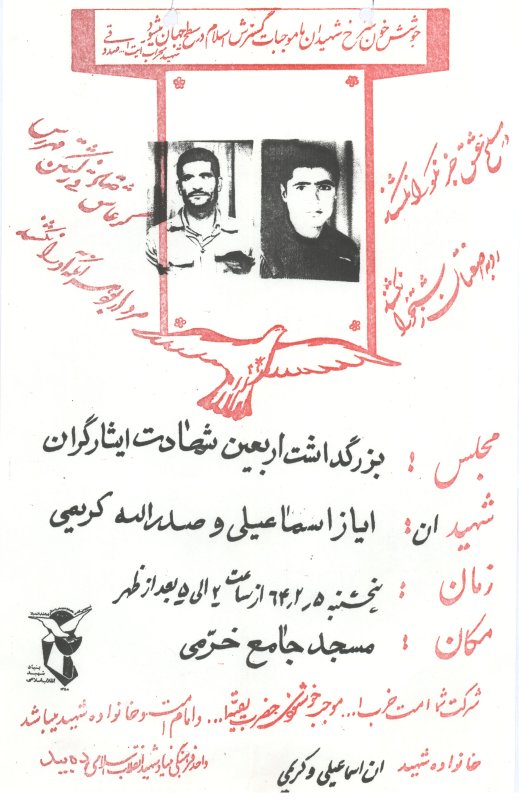 جوشش خون سرخ شهیدان ما موجبات گسترش اسلام در سطح جهان میشود
شهید محراب آیت ا... صدوقی
در مسلخ عشق جز نکو را نکشند
روبه صفتان زشتخو را نکشند
گر عاشق صادقی ز کشتن مگریز
مردار بود هر آنکه او را نکشند
مجلس : بزرگداشت اربعین شهادت ایثارگران
شهید ان : ایاز اسماعیلی و صدرالله کریمی
زمان : پنجشنبه ۶۴٫۲٫۵ از ساعت ۲ الی ۵ بعد از ظهر
مکان : مسجد جامع خرّمی
بنیاد
شهید
انقلاب اسلامی
شرکت شما امت حزب ا... موجب خوشنودی حضرت بقیة ا... و امام امت و خانواده شهید میباشد
خانواده شهید ان اسماعیلی و کریمی
واحد فرهنگی بنیاد شهید انقلاب اسلامی ده بید